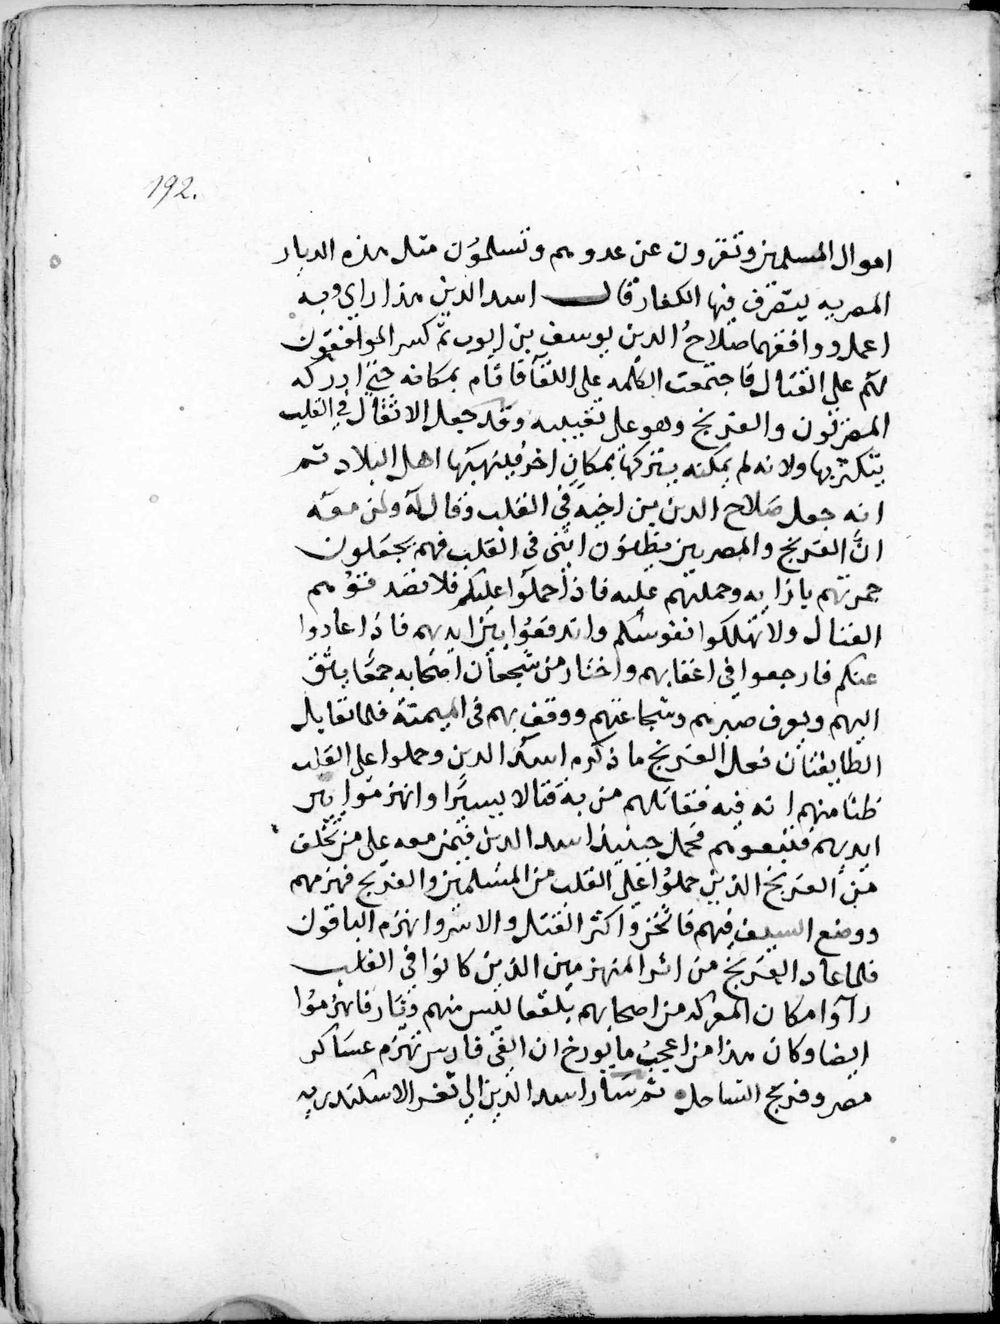 192.
اموال المسلمين وتفرون عن عدوهم وتسلمون مثل هذه الديار
المصريه يتصرف فيها الكفار قال اسد الدين هذا رايي وبه
اعمل ووافقهما صلاح الدين يوسف بن ايوب ثم كسر الموافقون
لهم على القتال فاجتمعت الكلمه على اللقآ فاقام بمكانه حتى ادركه
المصريون والفرنج وهو على تعبييه وقد جعل الاثقال في القلب
يتكثر بها ولانه لم يمكنه يتركها بمكان اخر فينهبها اهل البلاد ثم
انه جعل صلاح الدين بن اخيه في القلب وقال له ولمن معه
ان الفرنج والمصريين يظنون انني في القلب فهم يجعلون
جمرتهم بازايه وحملتهم عليه فاذا حملوا عليكم فلا تصدقوهم
القتال ولا تهلكوا نفوسكم واندفعوا بين ايديهم فاذا عادوا
عنكم فارجعوا في اعقابهم واختار من شجعان اصحابه جمعا يثق
اليهم ويعرف صبرهم وشجاعتهم ووقف بهم في الميمنة فلما تقابل
الطايفتان فعل الفرنج ما ذكره اسد الدين وحملوا على القلب
ظنا منهم انه فيه فقاتلهم من به قتالا يسيرا وانهزموا بين
ايديهم فتبعوهم فحمل حينيذ اسد الدين فيمن معه على من تخلف
من الفرنج الذين حملوا على القلب من المسلمين والفرنج فهزمهم
ووضع السيف فيهم فاثخن واكثر القتل والاسر وانهزم الباقون
فلما عاد الفرنج من اثر المنهزمين الذين كانوا في القلب
رآوا مكان المعركه من اصحابهم بلقعا ليس منهم ديار فانهزموا
ايضا وكان هذا من اعجب ما يورخ ان الفي فارس تهزم عساكر
مصر وفرنج الساحل ثم سار اسد الدين الى ثغر الاسكندريه